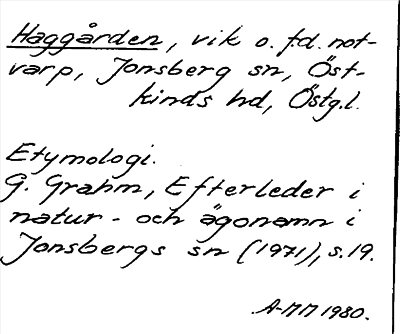 Haggården, vik o. f.d. not-
varp, Jonsberg sn, Öst-
kinds hd, Östg.l.
Etymologi.
G. Grahm, Efterleder i
natur- och ägonamn i
Jonsbergs sn (1971), s. 19.
A-MM 1980.